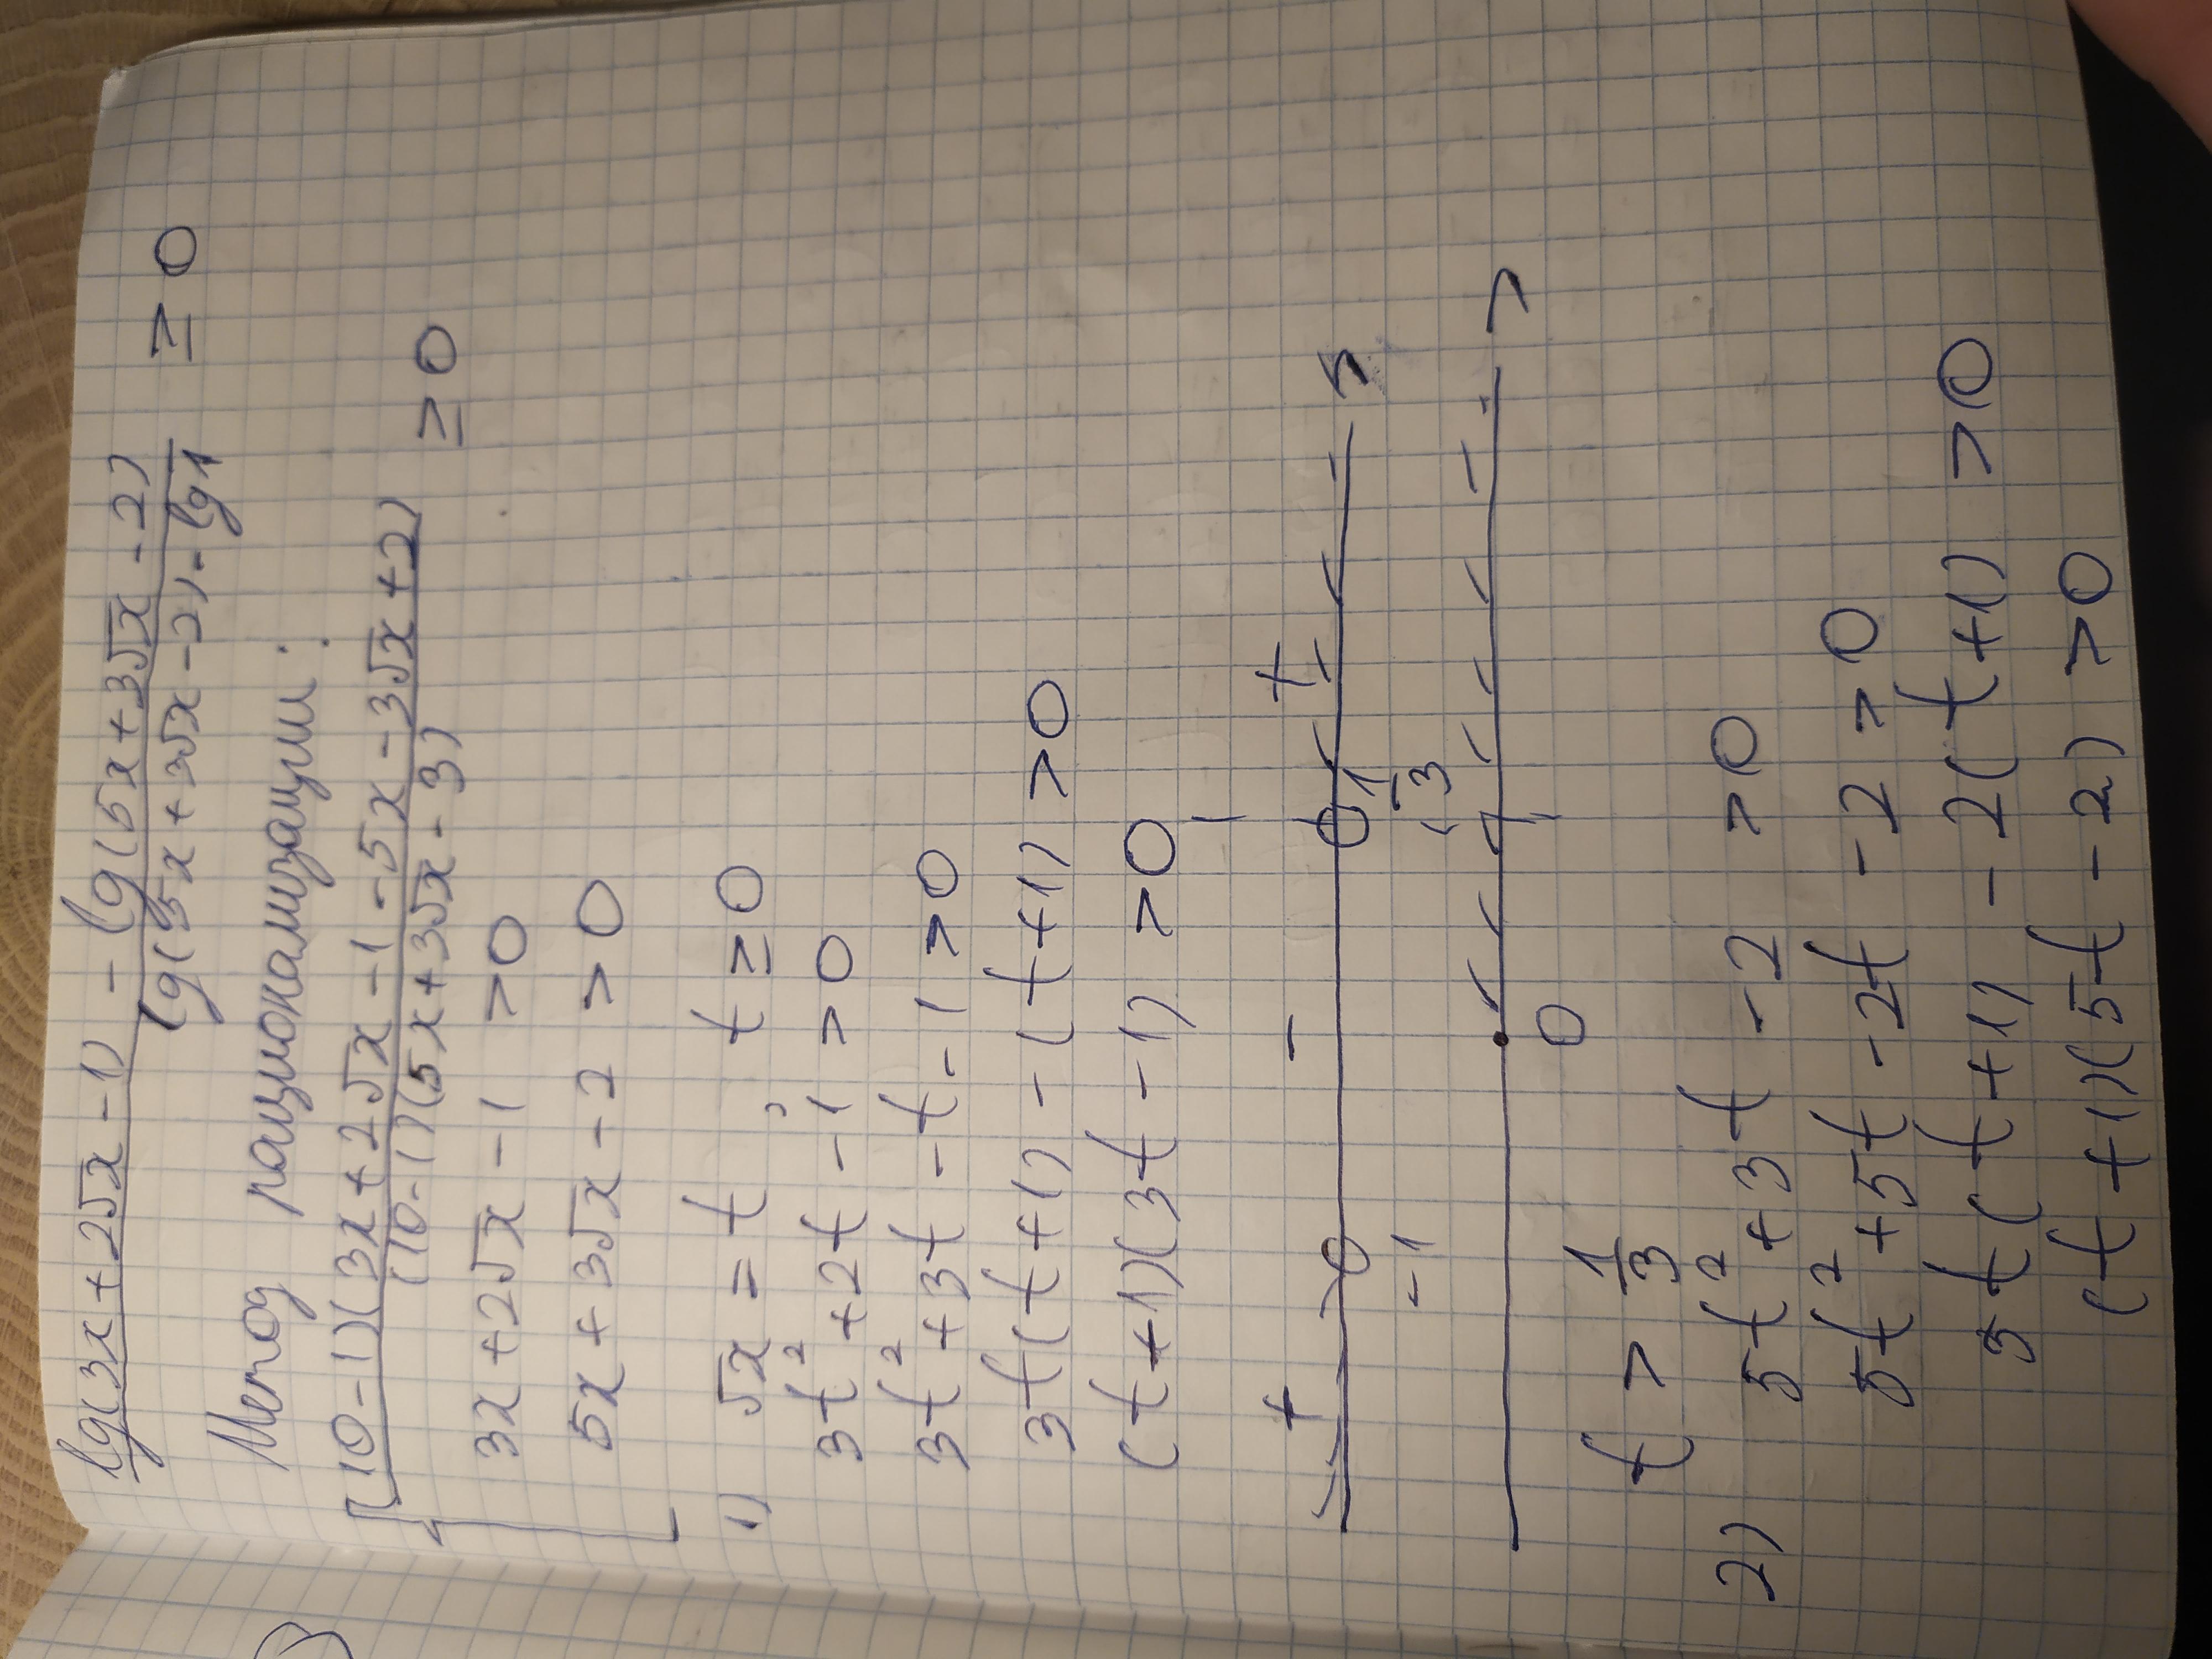 lg(3x+2√x-1) - lg(5x+3√x-2)
lg(5x+3√x-2) - lg1 ≥ 0
Метод рационализации:
(10-1)(3x+2√x-1-5x-3√x+2)
(10-1)(5x+3√x-3) ≥ 0
3x+2√x-1 >0
5x+3√x-2 >0
1) √x = t, t≥0
3t²+2t-1 >0
3t²+3t-t-1 >0
3t(t+1)-(t+1) >0
(t+1)(3t-1) >0
+ - +
-1 1/3
0
t > 1/3
2) 5t²+3t-2 >0
5t²+5t-2t-2 >0
5t(t+1)-2(t+1) >0
(t+1)(5t-2) >0